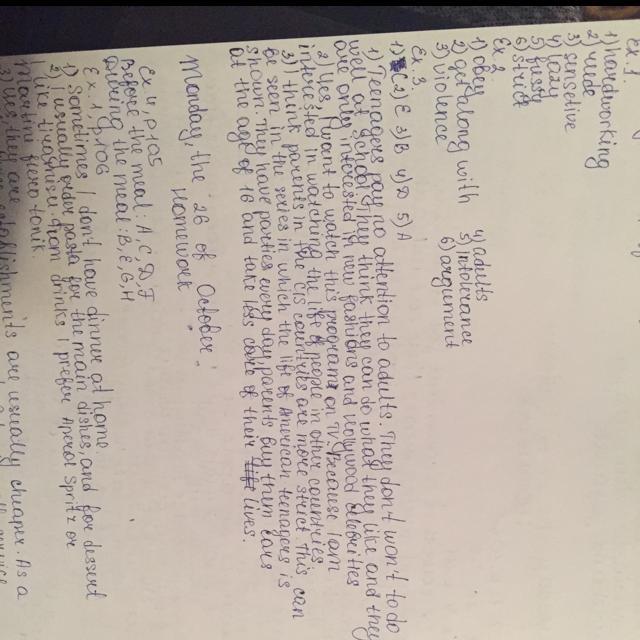 Ex. 1
1) hardworking
2) rude
3) sensetive
4) lazy
5) fussy
6) strict
Ex. 2
1) obey 4) adults
2) get along with 5) intolerance
3) violence 6) argument
Ex. 3.
1) 2) C 3) B 4) D 5) A
1) Teenagers pay no attention to adults. They don't won't to do
well at school, they think they can do what they like and they
are only interested in new fashions and Hollywood celebrities
2) Yes, I want to watch this program on TV. Because I am
interested in watching the life of people in other countries.
3) I think parents in the CIS countries are more strict. This can
be seen in the series in which the life of American teenagers is
shown. They have parties every day, parents buy them cars
at the age of 16 and take less care of their lives.
Monday, the 26 of October.
Homework.
Ex 4, p105
Before the meal: A, C, D, F
During the meal: B, E, G, H
Ex, 1, p.106
1) Sometimes I don't have dinner at home.
2) I usually order pasta for the main dishes, and for dessert
I like tiramisu. From drinks I prefer Aperol Spritz or
Martini fiero tonik.
3) Yes, they are establishments are usually cheaper. As a